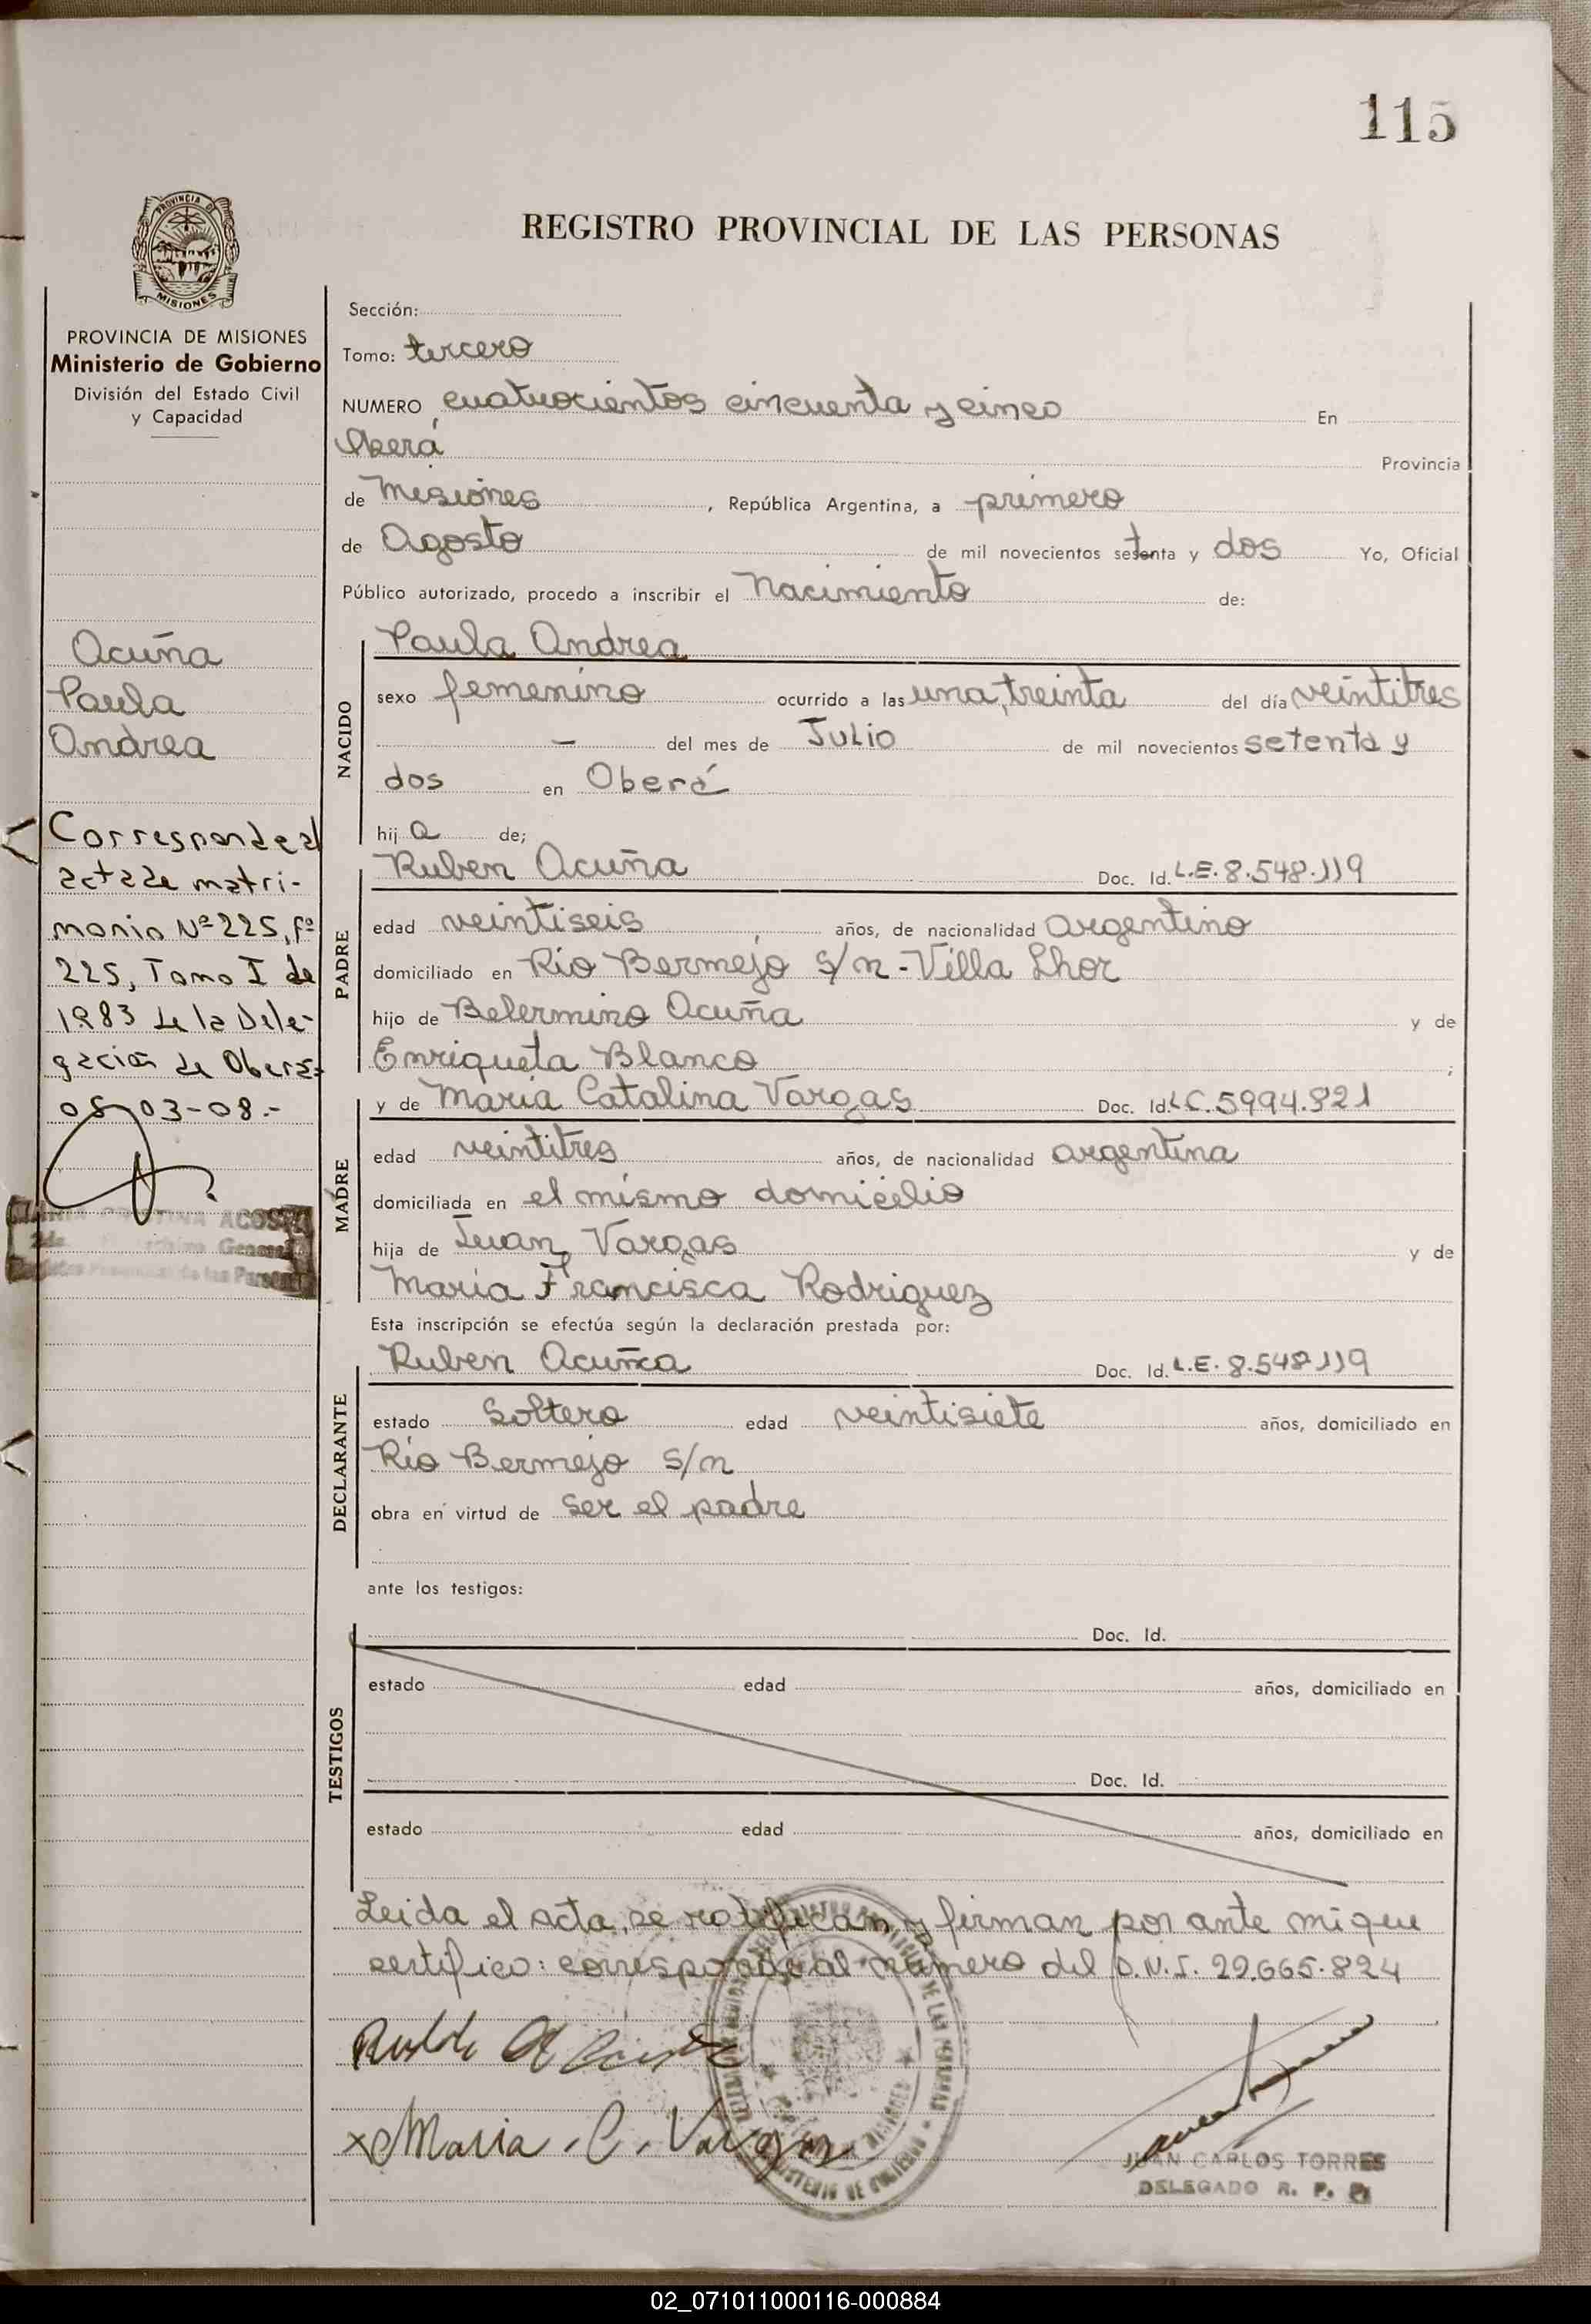 115
REGISTRO PROVINCIAL DE LAS PERSONAS
PROVINCIA DE
MISIONES
PROVINCIA DE MISIONES
Ministerio de Gobierno
División del Estado Civil
y Capacidad
Acuña
Paula
Andrea
Corresponde al
acta de matri-
monio Nº 225, Fº
225, Tomo I de
1983 de la Dele-
gación de Oberá-
05-03-08.-
ACOSTA
General
Sección:
Tomo: tercero
NUMERO cuatrocientos cincuenta y cinco En
Oberá Provincia
de Misiones, República Argentina, a primero
de Agosto de mil novecientos setenta y dos Yo, Oficial
Público autorizado, procedo a inscribir el Nacimiento de:
NACIDO
Paula Andrea
sexo femenino ocurrido a las una, treinta del día veintitres
— del mes de Julio de mil novecientos setenta y
dos en Oberá
hij a de;
PADRE
Ruben Acuña Doc. Id. L.E. 8.548.119
edad veintiseis años, de nacionalidad argentino
domiciliado en Río Bermejo s/n - Villa Lhor
hijo de Belermino Acuña y de
Enriqueta Blanco ;
MADRE
y de María Catalina Vargas Doc. Id. L.C. 5994.921
edad veintitres años, de nacionalidad argentina
domiciliada en el mismo domicilio
hija de Juan Vargas y de
María Francisca Rodriguez
Esta inscripción se efectúa según la declaración prestada por:
DECLARANTE
Ruben Acuña Doc. Id. L.E. 8.548.119
estado Soltero edad veintisiete años, domiciliado en
Río Bermejo s/n
obra en virtud de ser el padre
ante los testigos:
TESTIGOS
Doc. Id.
estado edad años, domiciliado en
Doc. Id.
estado edad años, domiciliado en
Leida el acta, se ratifican y firman por ante mi que
certifico: corresponde al número del D.N.I. 22.665.824
Maria C. Vargas
JUAN CARLOS TORRES
DELEGADO R. P. P.
02_071011000116-000884